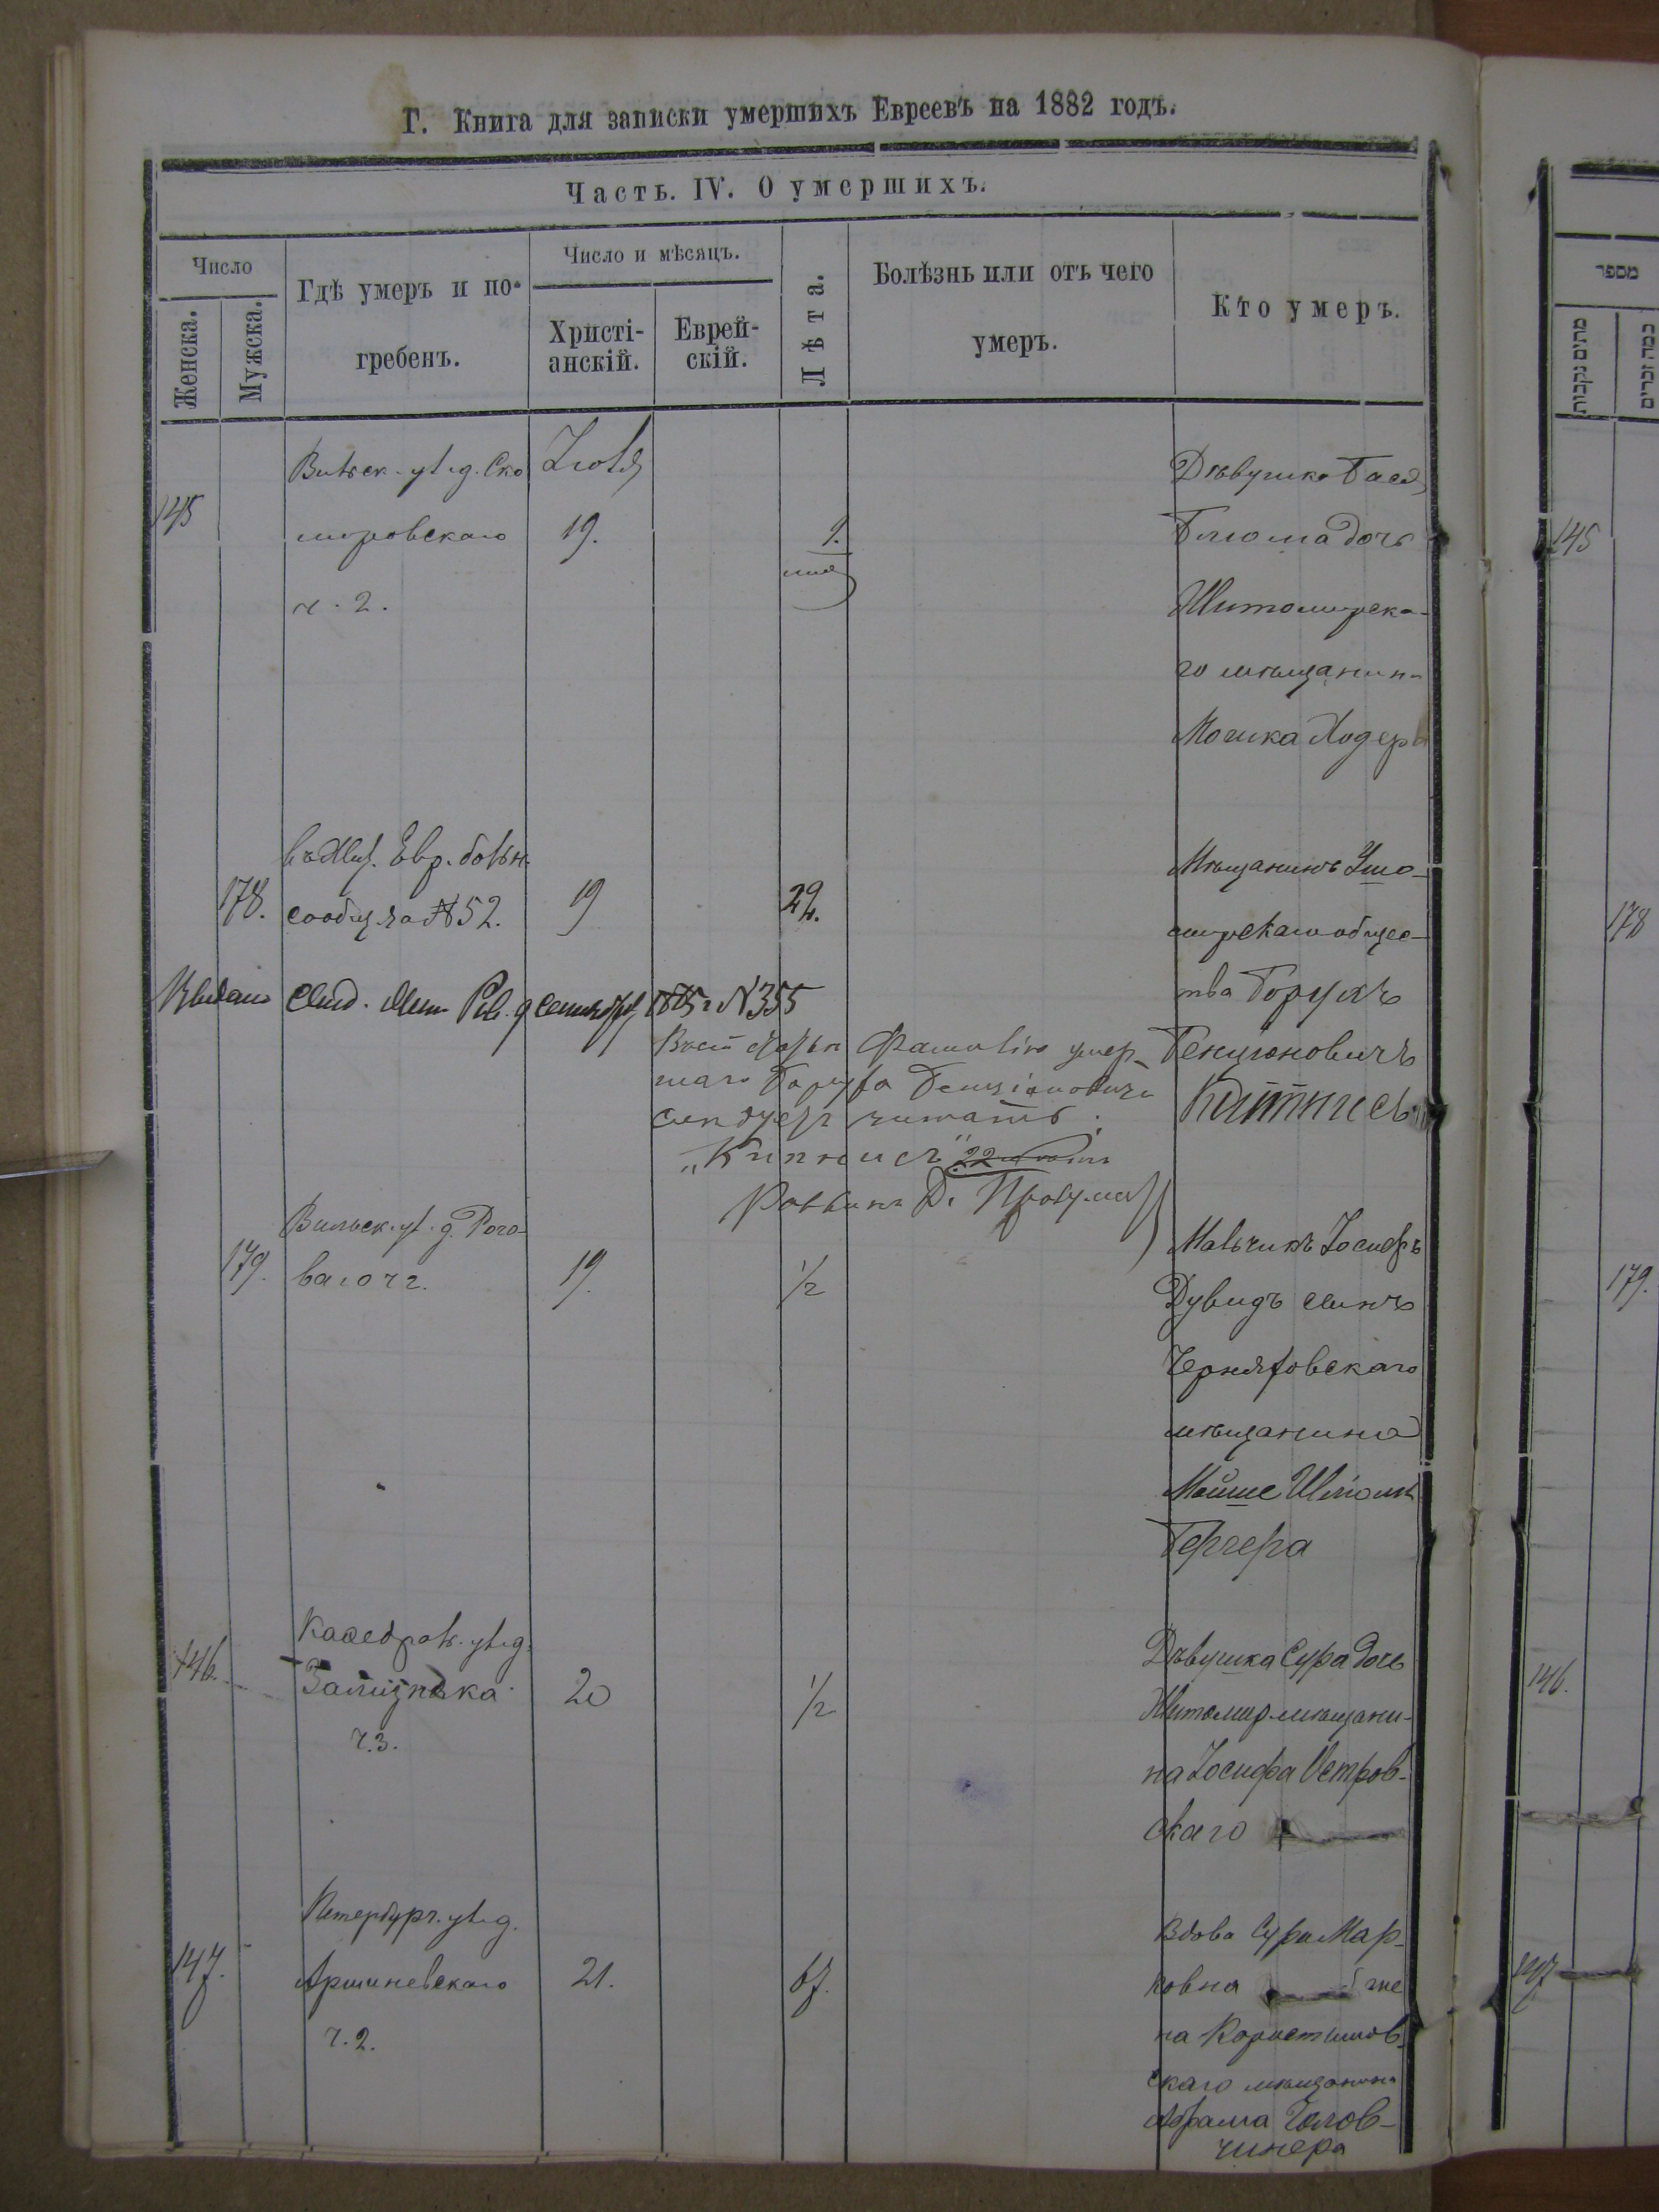 Г. Книга для записки умершихъ Евреевъ на 1882 годъ.
Часть. IV. О умершихъ.
Число
Женска.
Мужска.
Гдѣ умеръ и по-
гребенъ.
Число и мѣсяцъ.
Христі-
анскій.
Еврей-
скій.
Лѣта.
Болѣзнь или отъ чего
умеръ.
Кто умеръ.
145
Вильск. ул. д. Ско
мировскаго
ч. 2.
Іюля
19.
1.
Дѣвушка Бася
Блюма дочь
Житомирска-
го мѣщанина
Мошка Ходера
178.
въ Жит. Евр. больн.
сообщ. за № 52.
19
22.
Мѣщанинъ Ушо-
мирскаго общес-
тва Борухъ
Бенціоновичъ
Выдано Свид. Сентября № 355
фамилію умер-
шаго Боруха Бенціоновича
слѣдуетъ читать:
„Кипнисъ"
Раввинъ
179.
Вильск. ул. д. Рого-
ваго ч 2.
19.
1/2
Мальчикъ Іосифъ
Дувидъ сынъ
Черняховскаго
мѣщанина
Мойше Шлiомы
Бергера
146.
Каѳедрал. ул. д.
ч. 3.
20
1/2
Дѣвушка Сура дочь
Житомир. мѣщани-
на Іосифа Остров-
скаго
147.
Петербург. ул. д.
Аршиневскаго
ч. 2.
21.
67.
Вдова Сура Мар-
ковна же
на Коростышов-
скаго мѣщанина
Абрама Голов-
чинера
מספר
מתים נקבות
כמה זכרים
145
178
179.
146.
147